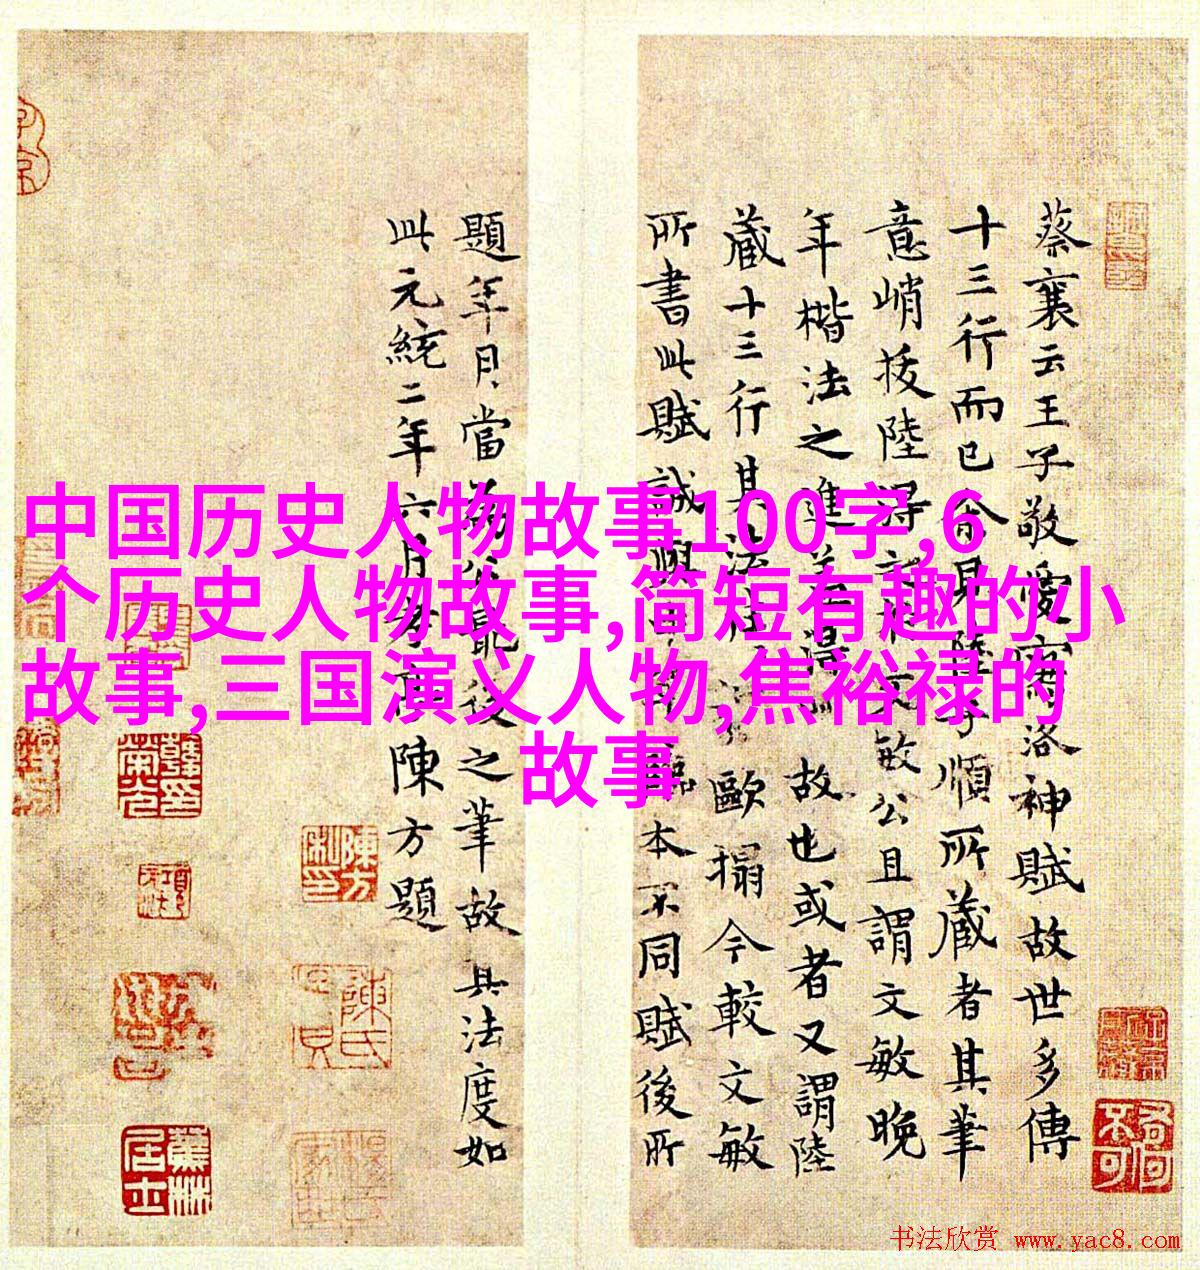 中国历史人物故事100字,6
个历史人物故事,简短有趣的小
故事,三国演义人物,焦裕禄的
故事
蔡襄云王子敬愛寫洛神賦故世多傳
十三行而已余見陸子順所藏者其筆
意峭拔陸淂文敏公且謂文敏晚
年楷法之進蓋得故也或者又謂陸
藏十三行其法歐搨今較文敏
所書此賦誠與臨本不同賦後所
題年月當為公最後之筆故其法度如
此元統二年六月陳方題
蕉林居士
书法欣赏 www.yac8.com